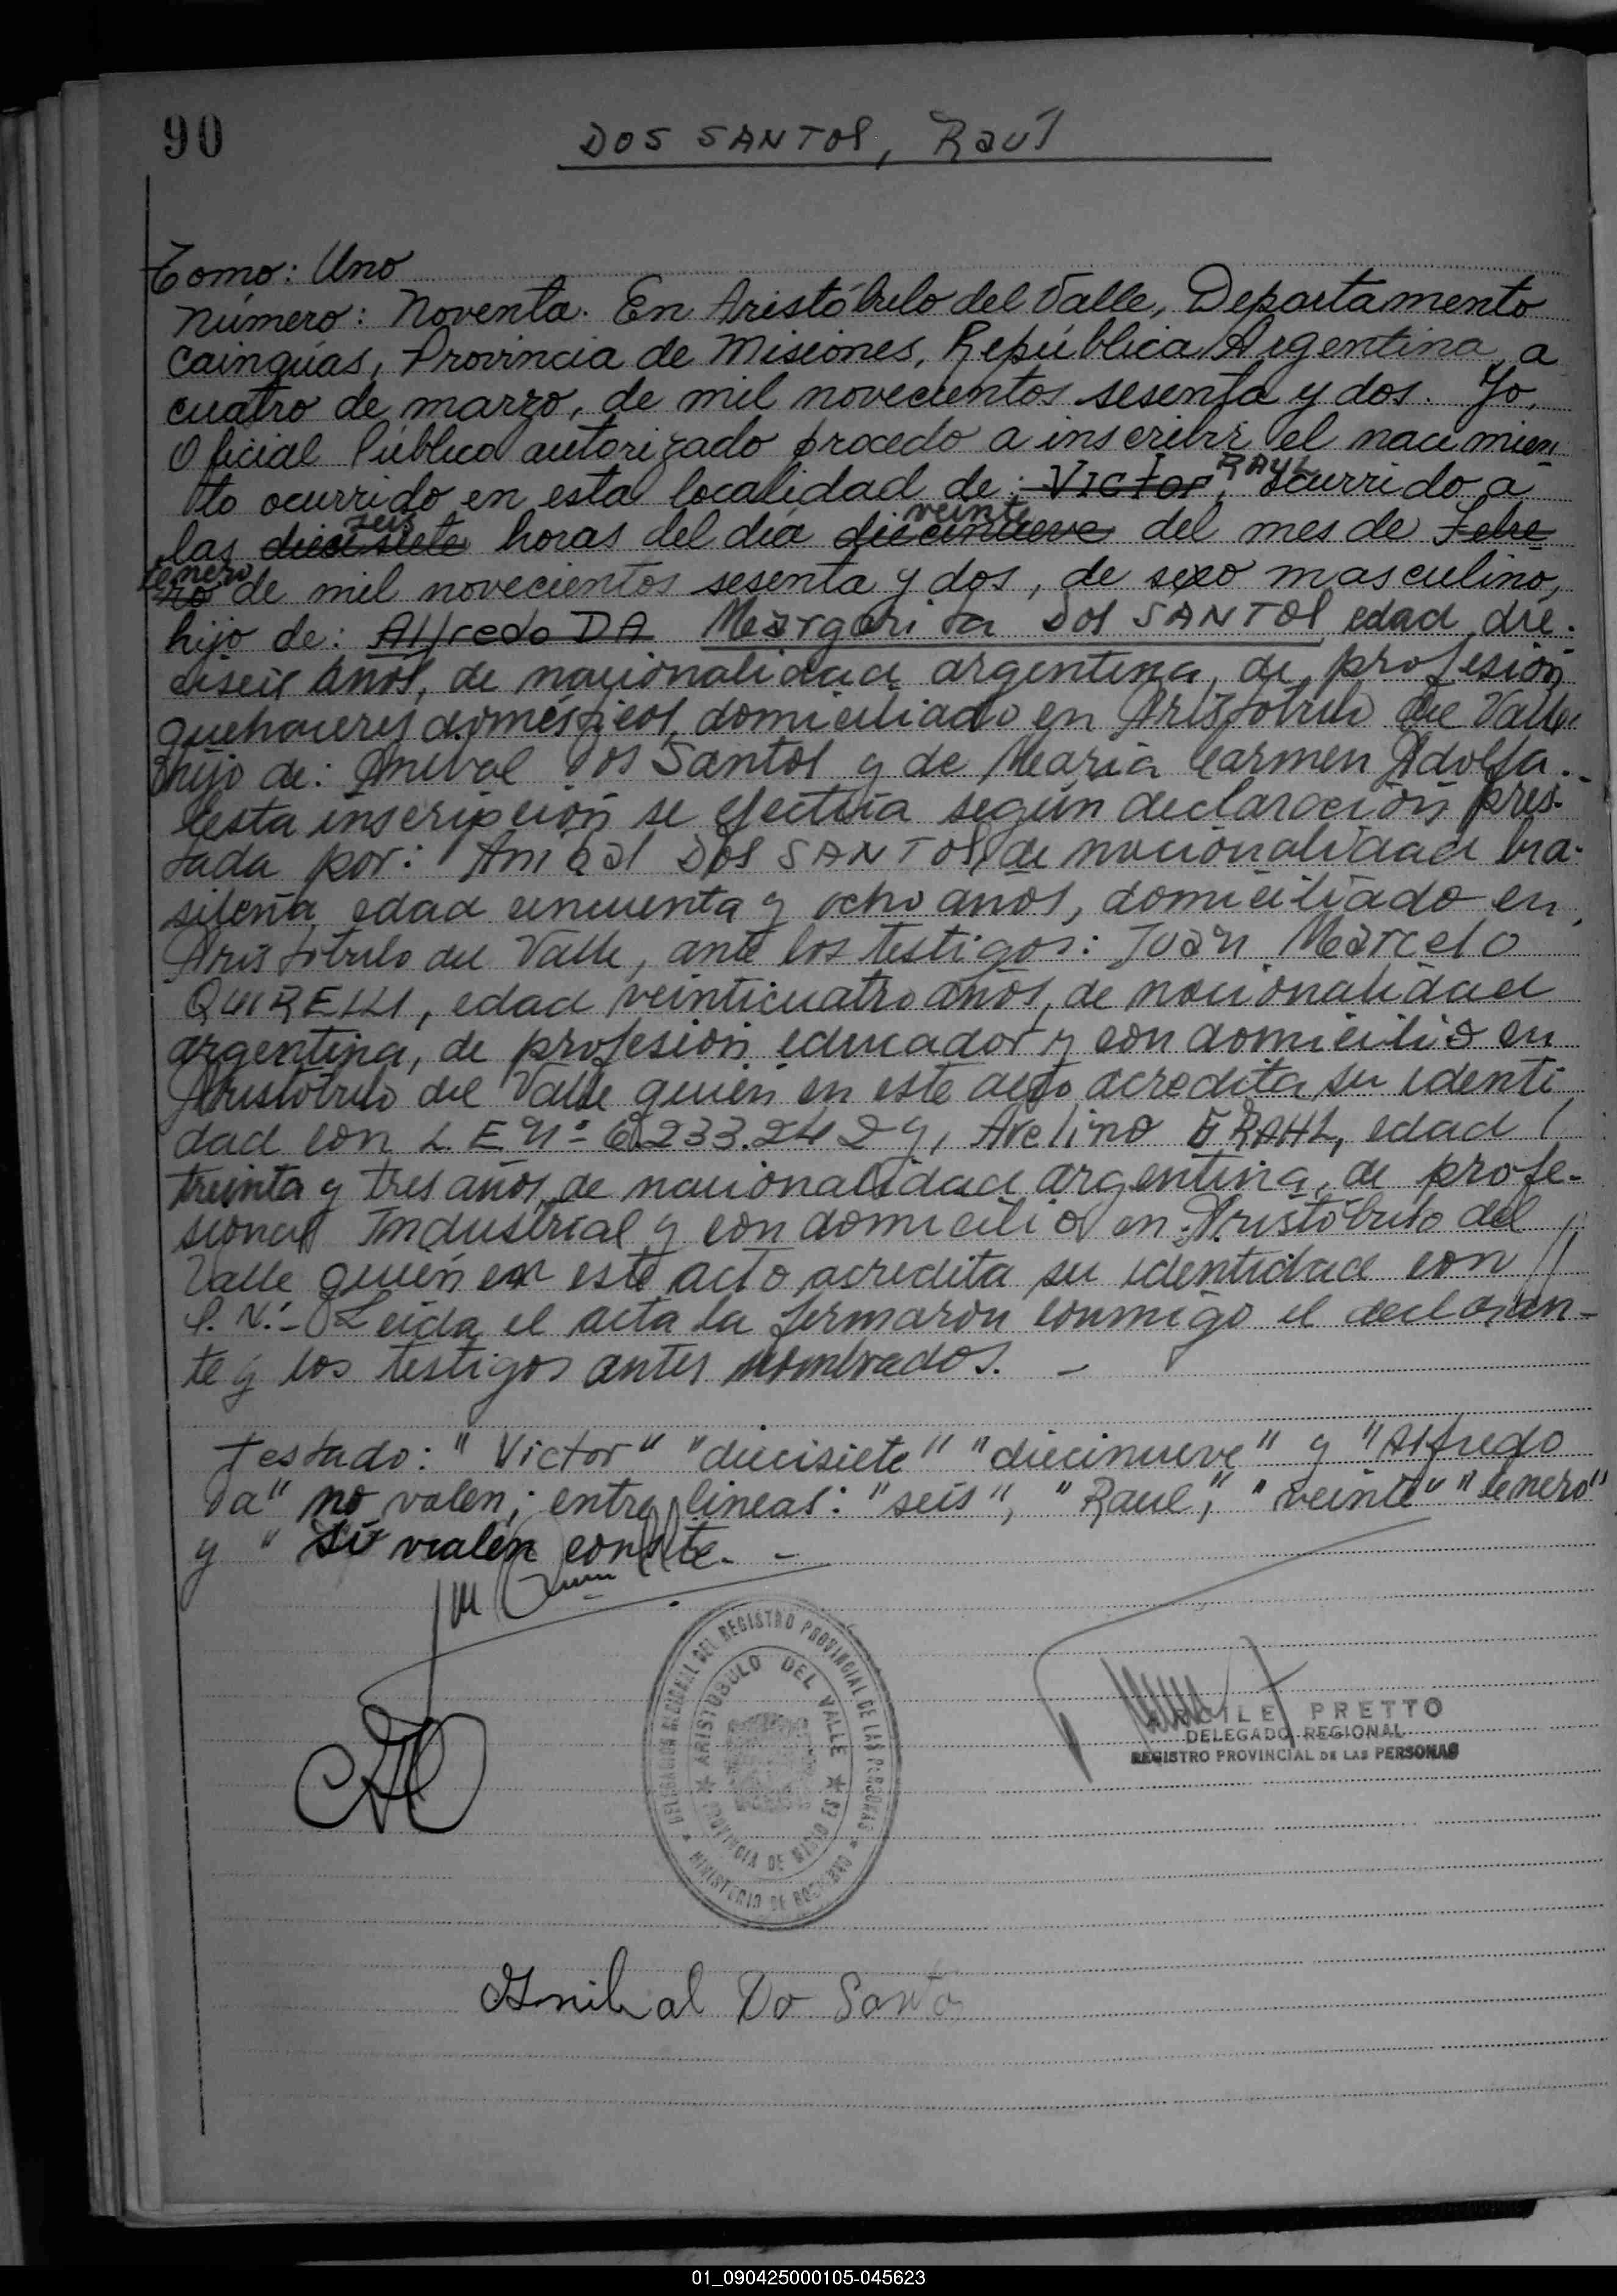 90
DOS SANTOS, Raúl
Tomo: Uno
Número: Noventa. En Aristóbulo del Valle, Departamento
Cainguas, Provincia de Misiones, República Argentina, a
cuatro de marzo, de mil novecientos sesenta y dos. Yo,
Oficial Público autorizado procedo a inscribir el nacimien
RAUL
to ocurrido en esta localidad de: Victor, ocurrido a
seis veinte
las diecisiete horas del día diecinueve del mes de Febre
enero
ro de mil novecientos sesenta y dos, de sexo masculino,
hijo de: Alfredo DA Margarita DOS SANTOS edad die-
ciseis años, de nacionalidad argentina, de profesión
quehaceres domésticos, domiciliado en Aristóbulo del Valle
hijo de: Anibal Dos Santos y de Maria Carmen Adolfa.
Esta inscripción se efectúa según declaración pres-
tada por: Anibal DOS SANTOS de nacionalidad bra-
sileña, edad cincuenta y ocho años, domiciliado en
Aristóbulo del Valle, ante los testigos: Juan Marcelo
edad veinticuatro años, de nacionalidad
argentina, de profesión educador y con domicilio en
Aristóbulo del Valle quien en este acto acredita su identi
dad con L. E Nº Avelino edad
treinta y tres años, de nacionalidad argentina, de profe-
sional Industrial y con domicilio en Aristóbulo del
Valle quien en este acto acredita su identidad con
Leida el acta la firmaron conmigo el declaran-
te y los testigos antes nombrados. -
Testado: "Victor" "diecisiete" "diecinueve" y "Alfredo
Da" no valen; entre lineas: "seis", "Raul", "veinte" "enero"
y " si valen conste. -
DELEGACION REGIONAL DEL REGISTRO PROVINCIAL DE LAS PERSONAS
ARISTOBULO DEL VALLE
PROVINCIA DE MISIONES
MINISTERIO DE GOBIERNO
PRETTO
DELEGADO REGIONAL
REGISTRO PROVINCIAL DE LAS PERSONAS
Anibal Do Santos
01_090425000105-045623